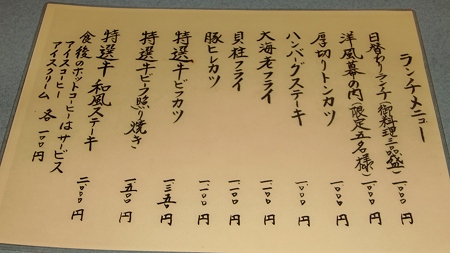 ランチメニュー
日替わりランチ(御料理三品盛) 一、〇〇〇円
洋風幕の内(限定五名様) 一、〇〇〇円
厚切りトンカツ 一、〇〇〇円
ハンバーグステーキ 一、〇〇〇円
大海老フライ 一、〇〇〇円
貝柱フライ 一、一〇〇円
豚ヒレカツ 一、一〇〇円
特選牛ビーフカツ 一、三五〇円
特選牛ビーフ照り焼き 一、五〇〇円
特選牛和風ステーキ 二、〇〇〇円
食後のホットコーヒーはサービス
アイスコーヒー
アイスクリーム 各一〇〇円